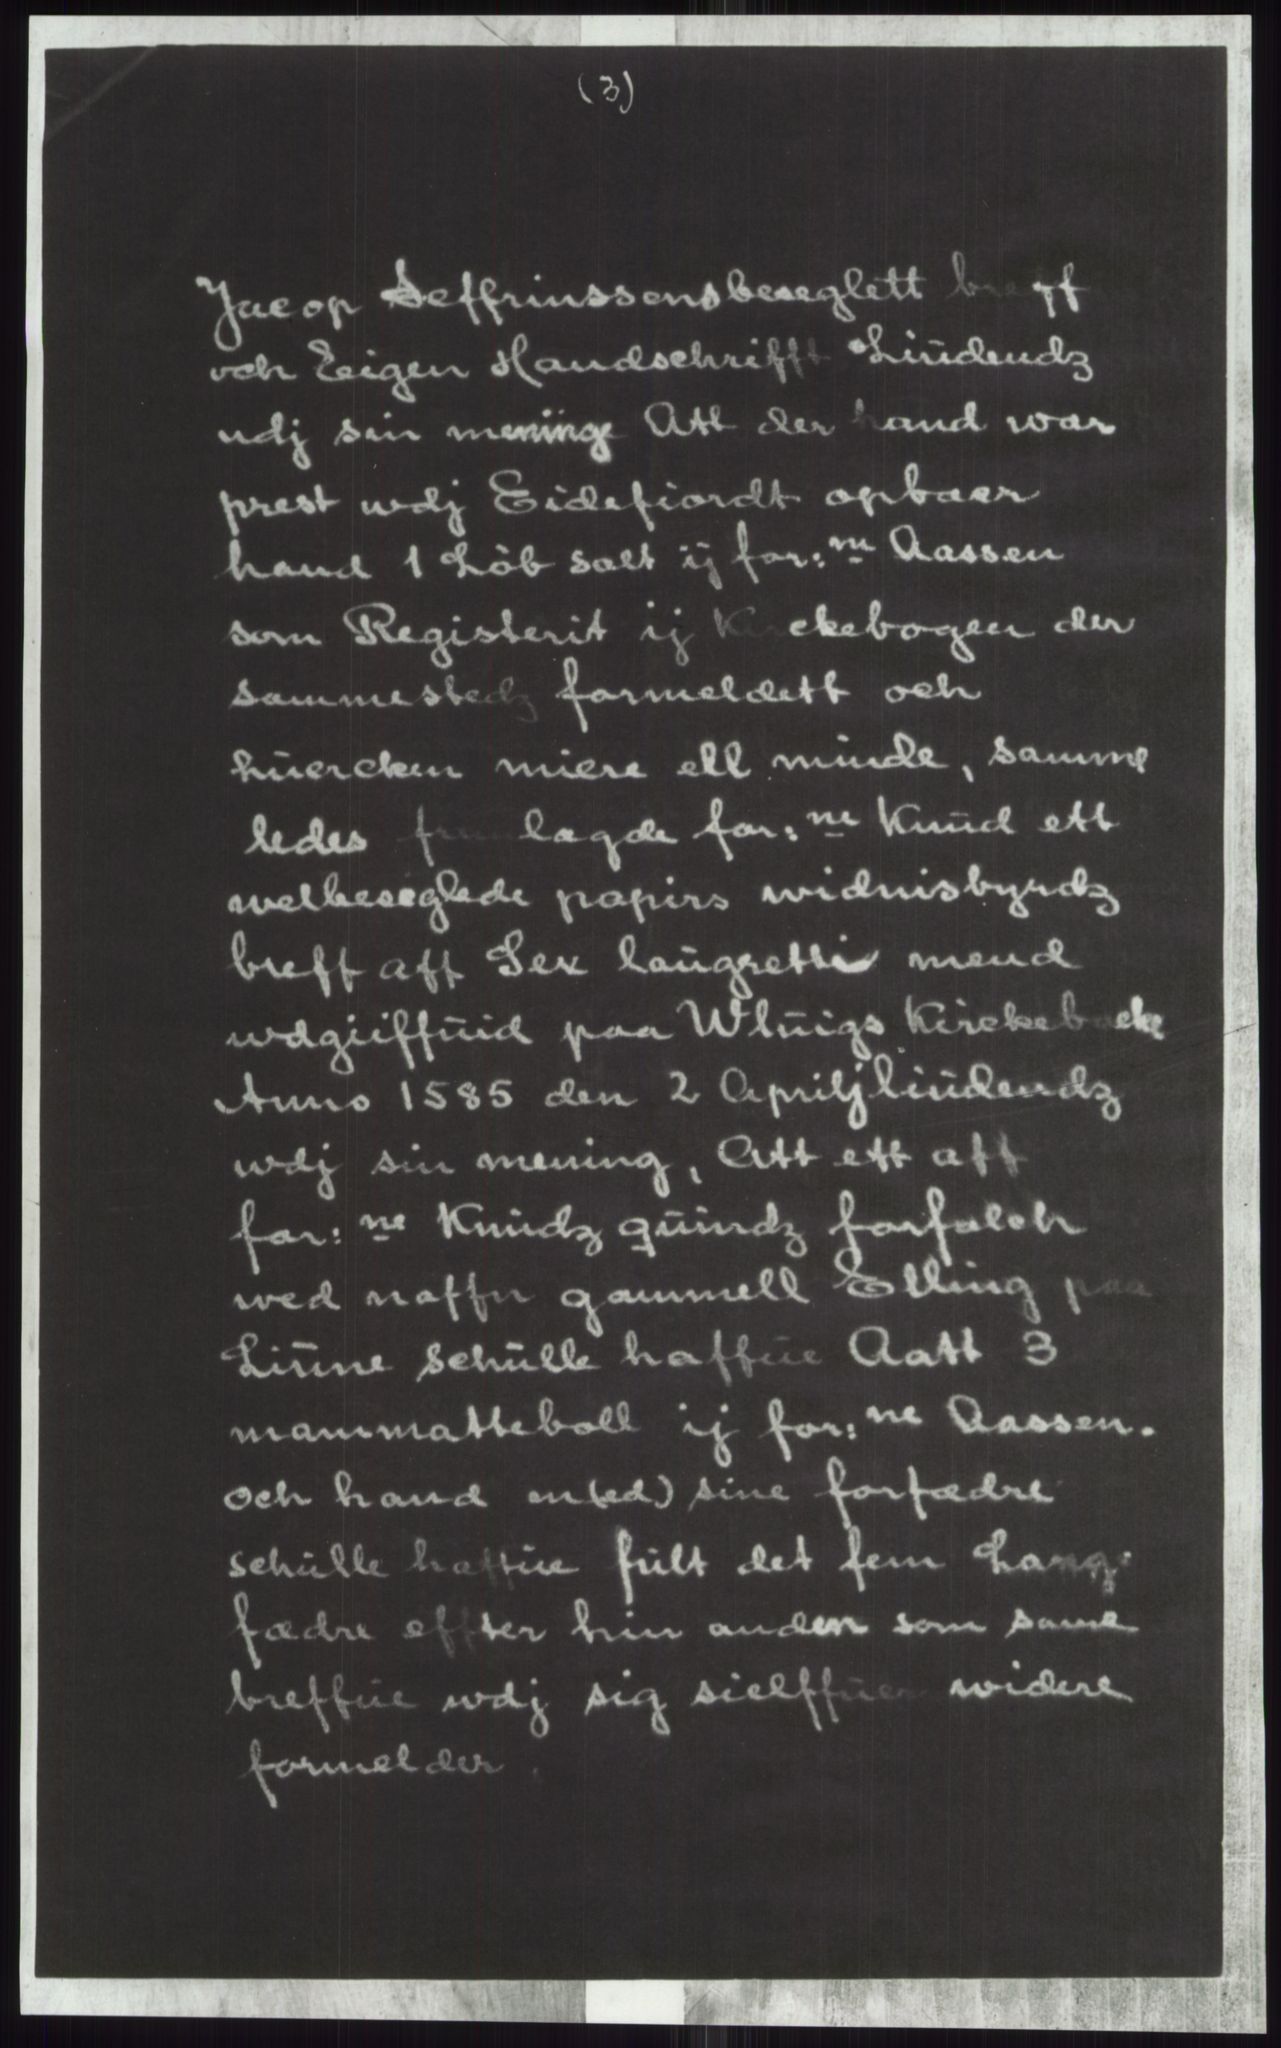 (3)
Jacop Seffrinssens beseglett breff
och Eigen Handschrifft Liudendz
udj sin meninge Att der hand war
prest wdj Eidefiordt opbaer
hand 1 Löb salt ij for:ne Aassen
som Registerit ij Kirckebogen der
sammestedz formeldett och
huercken miere ell minde, samme
ledes fremlagde for:ne Knud ett
welbeseglede papirs widnisbyrdz
breff aff Sex laugretti mend
wdgiffuid paa Wluigs Kirckebacke
Anno 1585 den 2 Aprilj liudendz
wdj sin mening, Att ett aff
for:ne Knudz quindz forfolch
wed naffn gammell Elling paa
Liune schulle haffue Aatt 3
mammatteboll ij for:ne Aassen.
och hand m(ed) sine forfædre
schulle haffue fult det fem Lang-
fædre effter hin anden som same
breffue wdj sig sielffuer widere
formelder.